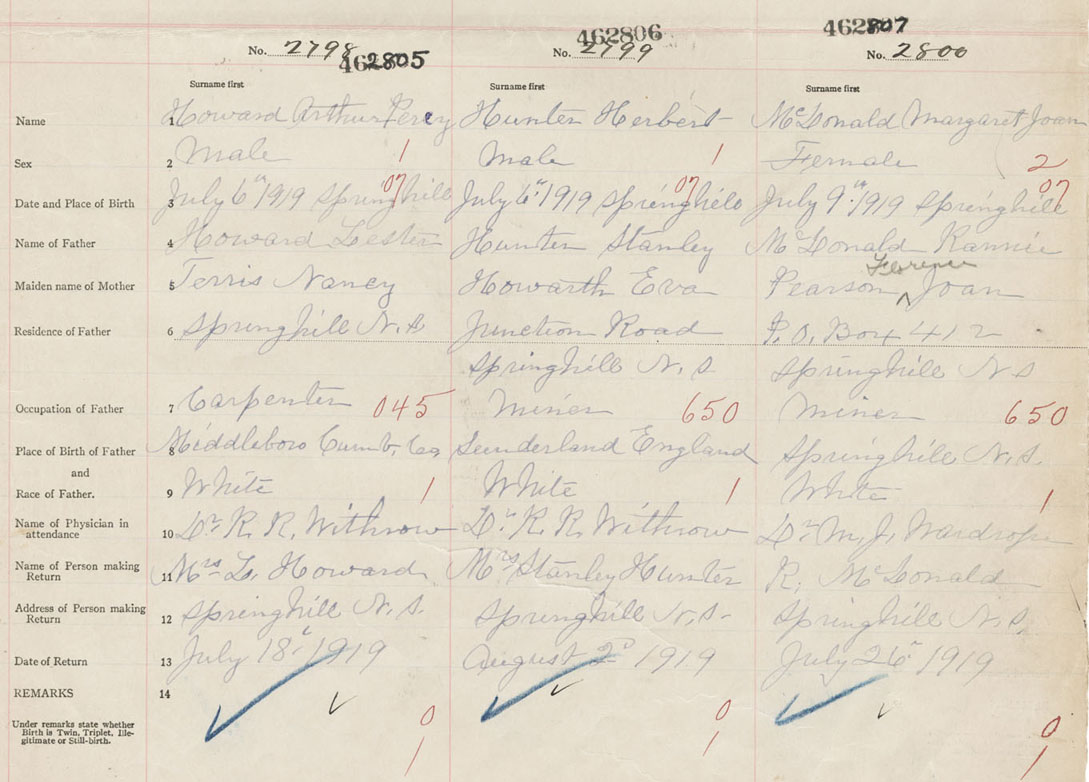 462805 462806 462807
No. 2798 No. 2799 No. 2800
Surname first Surname first Surname first
Name 1 Howard Arthur Percy Hunter Herbert McDonald Margaret Joan
Sex 2 Male 1 Male 1 Female 2
07 07 07
Date and Place of Birth 3 July 6th 1919 Springhill July 6th 1919 Springhill July 9th 1919 Springhill
Name of Father 4 Howard Lester Hunter Stanley McDonald Rannie
Florence
Maiden name of Mother 5 Terris Nancy Howarth Eva Pearson ^ Joan
Residence of Father 6 Springhill N.S. Junction Road P.O. Box 412
Springhill N.S Springhill N.S
Occupation of Father 7 Carpenter 045 Miner 650 Miner 650
Place of Birth of Father 8 Middleboro Cumb. Co Sunderland England Springhill N.S.
and
Race of Father. 9 White 1 White 1 White 1
Name of Physician in
attendance 10 Dr. R. R. Withrow Dr. R. R. Withrow Dr M. J. Wardrope
Name of Person making
Return 11 Mrs L. Howard Mrs Stanley Hunter R. McDonald
Address of Person making
Return 12 Springhill N.S. Springhill N.S. Springhill N.S.
Date of Return 13 July 18th 1919 August 2d 1919 July 26th 1919
REMARKS 14
Under remarks state whether
Birth is Twin, Triplet, Ille-
gitimate or Still-birth.
0 0 0
1 1 1